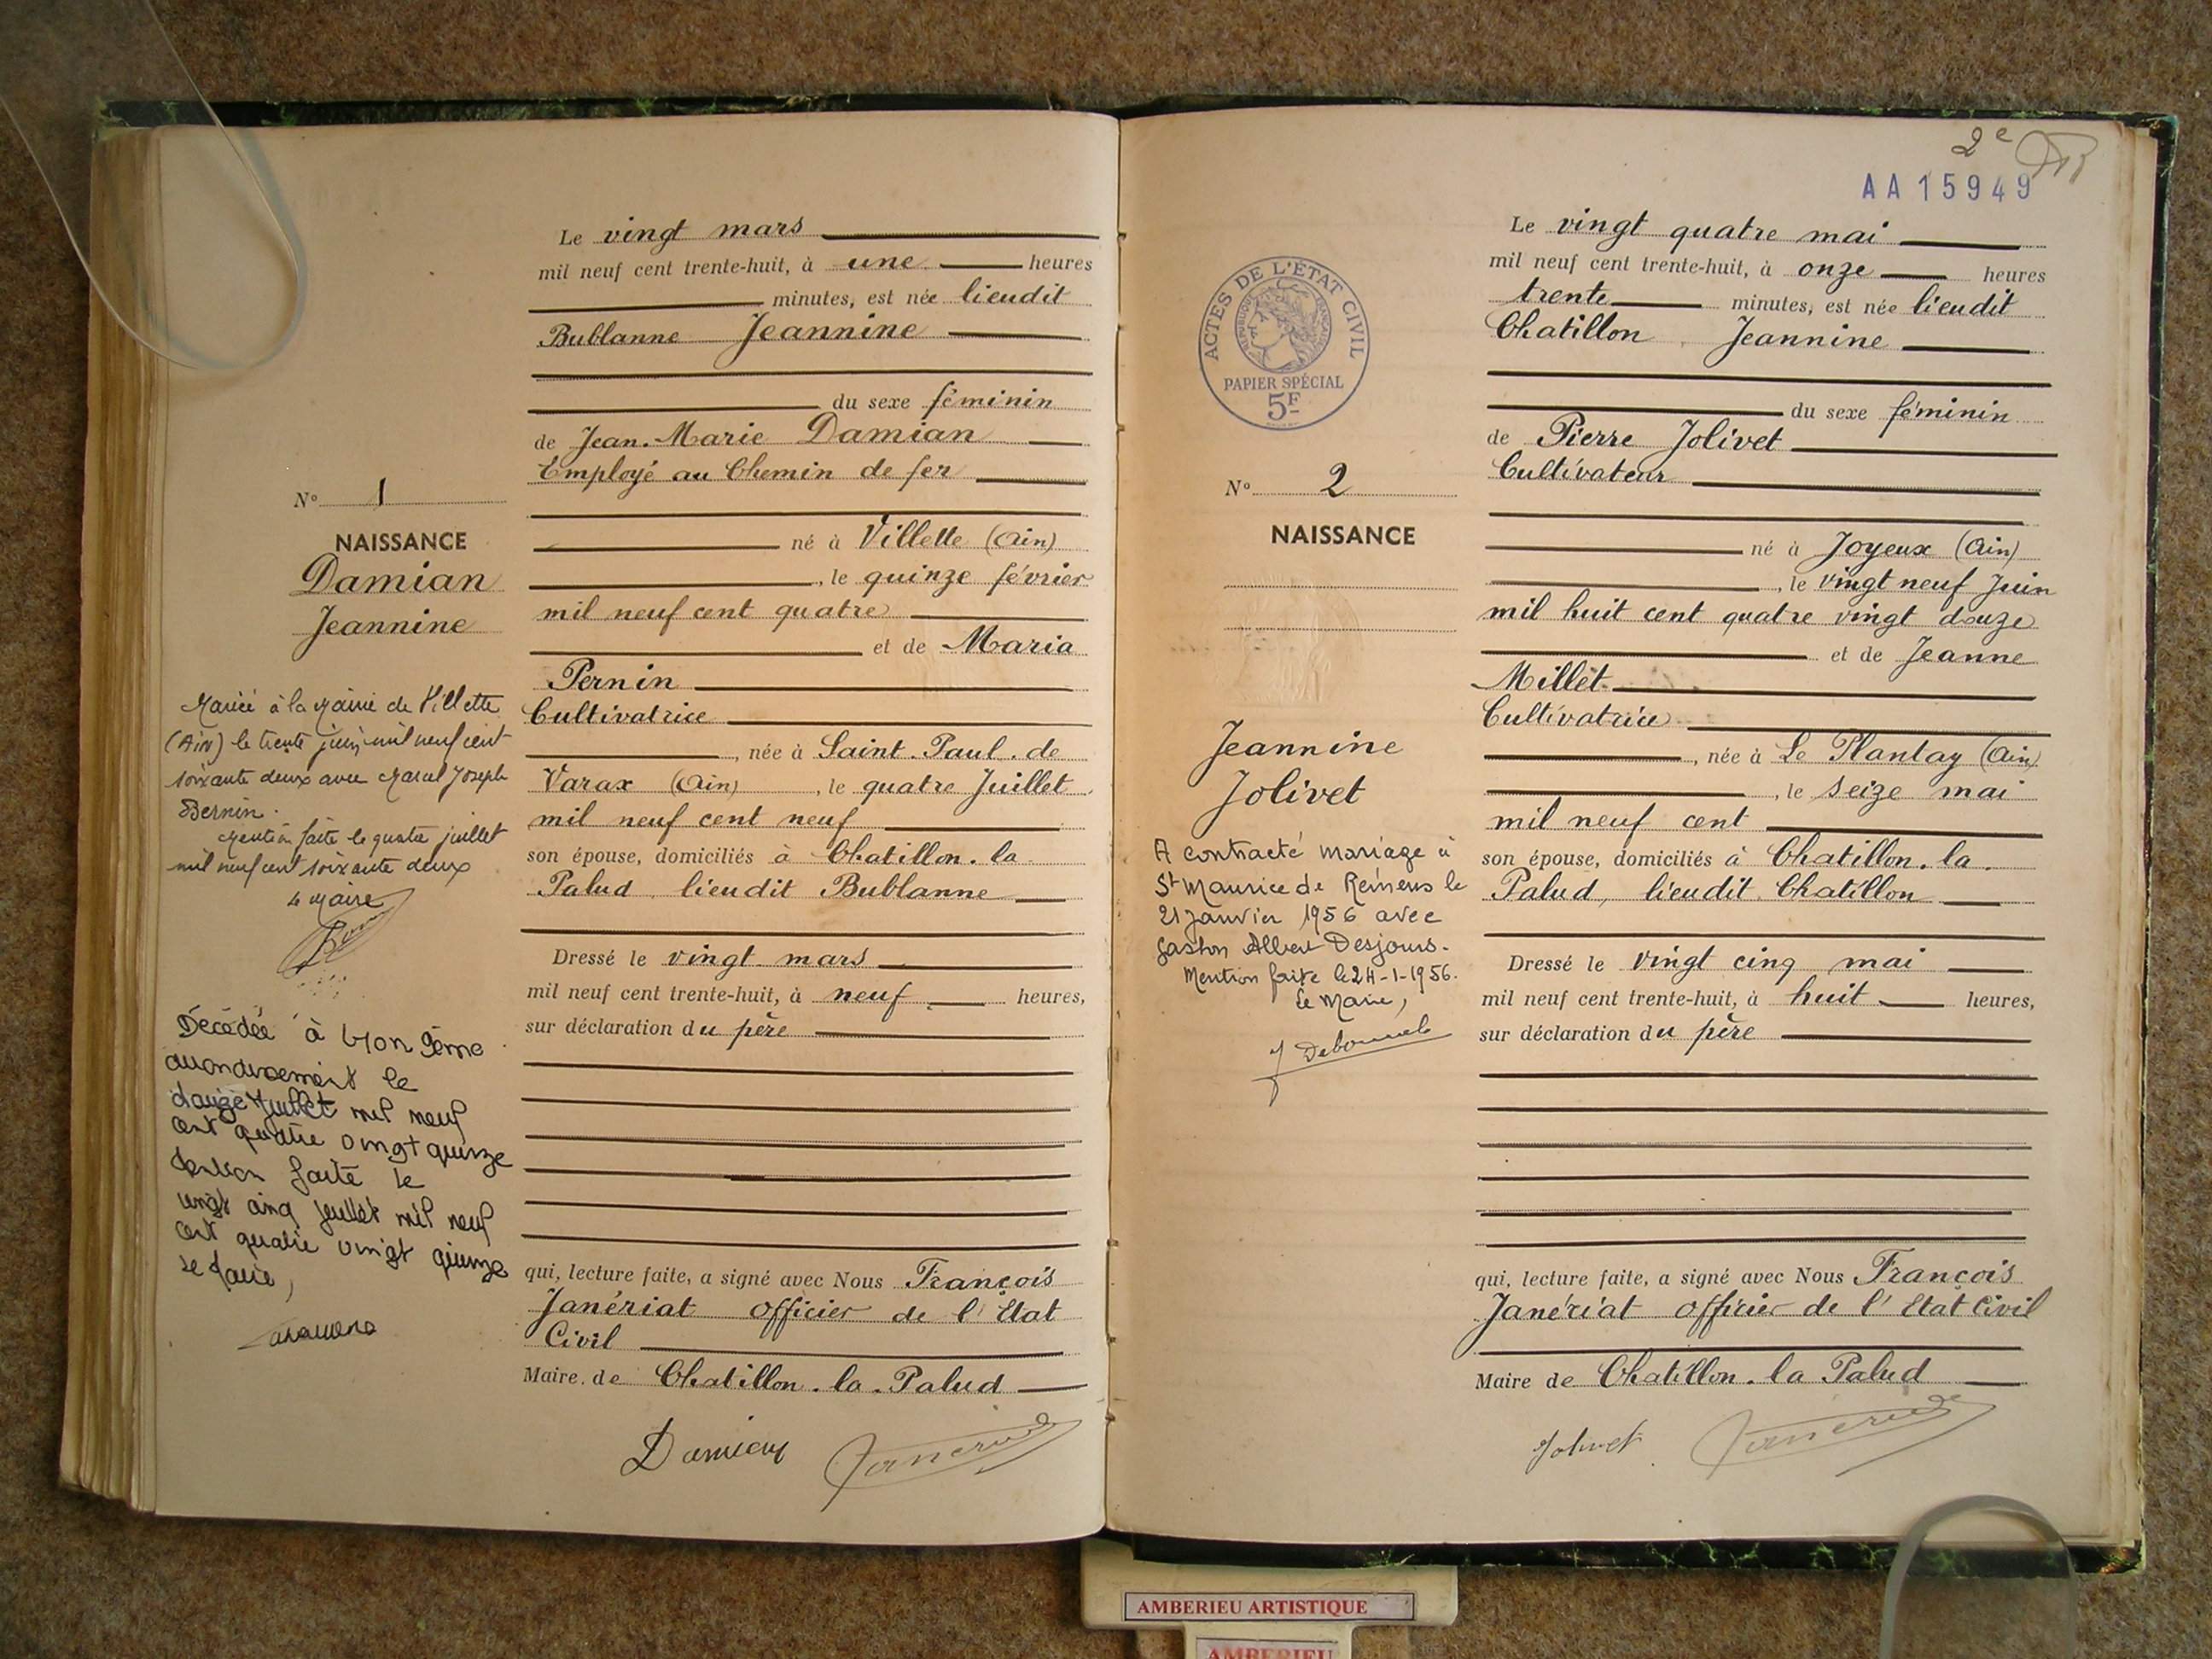 Le vingt mars
mil neuf cent trente-huit, à une heures
minutes, est née lieudit
Bublanne Jeannine
du sexe féminin
de Jean-Marie Damian
Employé au Chemin de fer
N° 1
né à Villette (Ain)
NAISSANCE
Damian
Jeannine
, le quinze février
mil neuf cent quatre
et de Maria
Pernin
Cultivatrice
, née à Saint-Paul-de
Varax (Ain) , le quatre Juillet
mil neuf cent neuf
son épouse, domiciliés à Chatillon-la
Palud lieudit Bublanne
Dressé le vingt mars
mil neuf cent trente-huit, à neuf heures,
sur déclaration du père
qui, lecture faite, a signé avec Nous François
Janériat officier de l'Etat
Civil
Maire de Chatillon-la-Palud
Damian Janériat
Mariée à la Mairie de Villette
(Ain) le trente juin mil neuf cent
soixante deux avec Marcel Joseph
Bernin.
Mention faite le quatre juillet
mil neuf cent soixante deux
Le Maire
Décédée à Lyon 9ème
arrondissement le
douze Juillet mil neuf
cent quatre vingt quinze
Mention faite le
vingt cinq juillet mil neuf
cent quatre vingt quinze
Le Maire,
2e
AA15949
Le vingt quatre mai
mil neuf cent trente-huit, à onze heures
trente minutes, est née lieudit
Chatillon Jeannine
du sexe féminin
de Pierre Jolivet
Cultivateur
ACTES DE L'ÉTAT CIVIL
RÉPUBLIQUE FRANÇAISE
PAPIER SPÉCIAL
5F
N° 2
NAISSANCE
né à Joyeux (Ain)
, le vingt neuf Juin
mil huit cent quatre vingt douze
et de Jeanne
Millet
Cultivatrice
, née à Le Plantay (Ain)
, le seize mai
mil neuf cent
son épouse, domiciliés à Chatillon-la-
Palud, lieudit Chatillon
Dressé le vingt cinq mai
mil neuf cent trente-huit, à huit heures,
sur déclaration du père
qui, lecture faite, a signé avec Nous François
Janériat officier de l'Etat Civil
Maire de Chatillon-la Palud
Jolivet Janériat
Jeannine
Jolivet
A contracté mariage à
St Maurice de Rémens le
21 Janvier 1956 avec
Gaston Albert Desjours.
Mention faite le 24-1-1956.
Le Maire,
AMBERIEU ARTISTIQUE
AMBERIEU